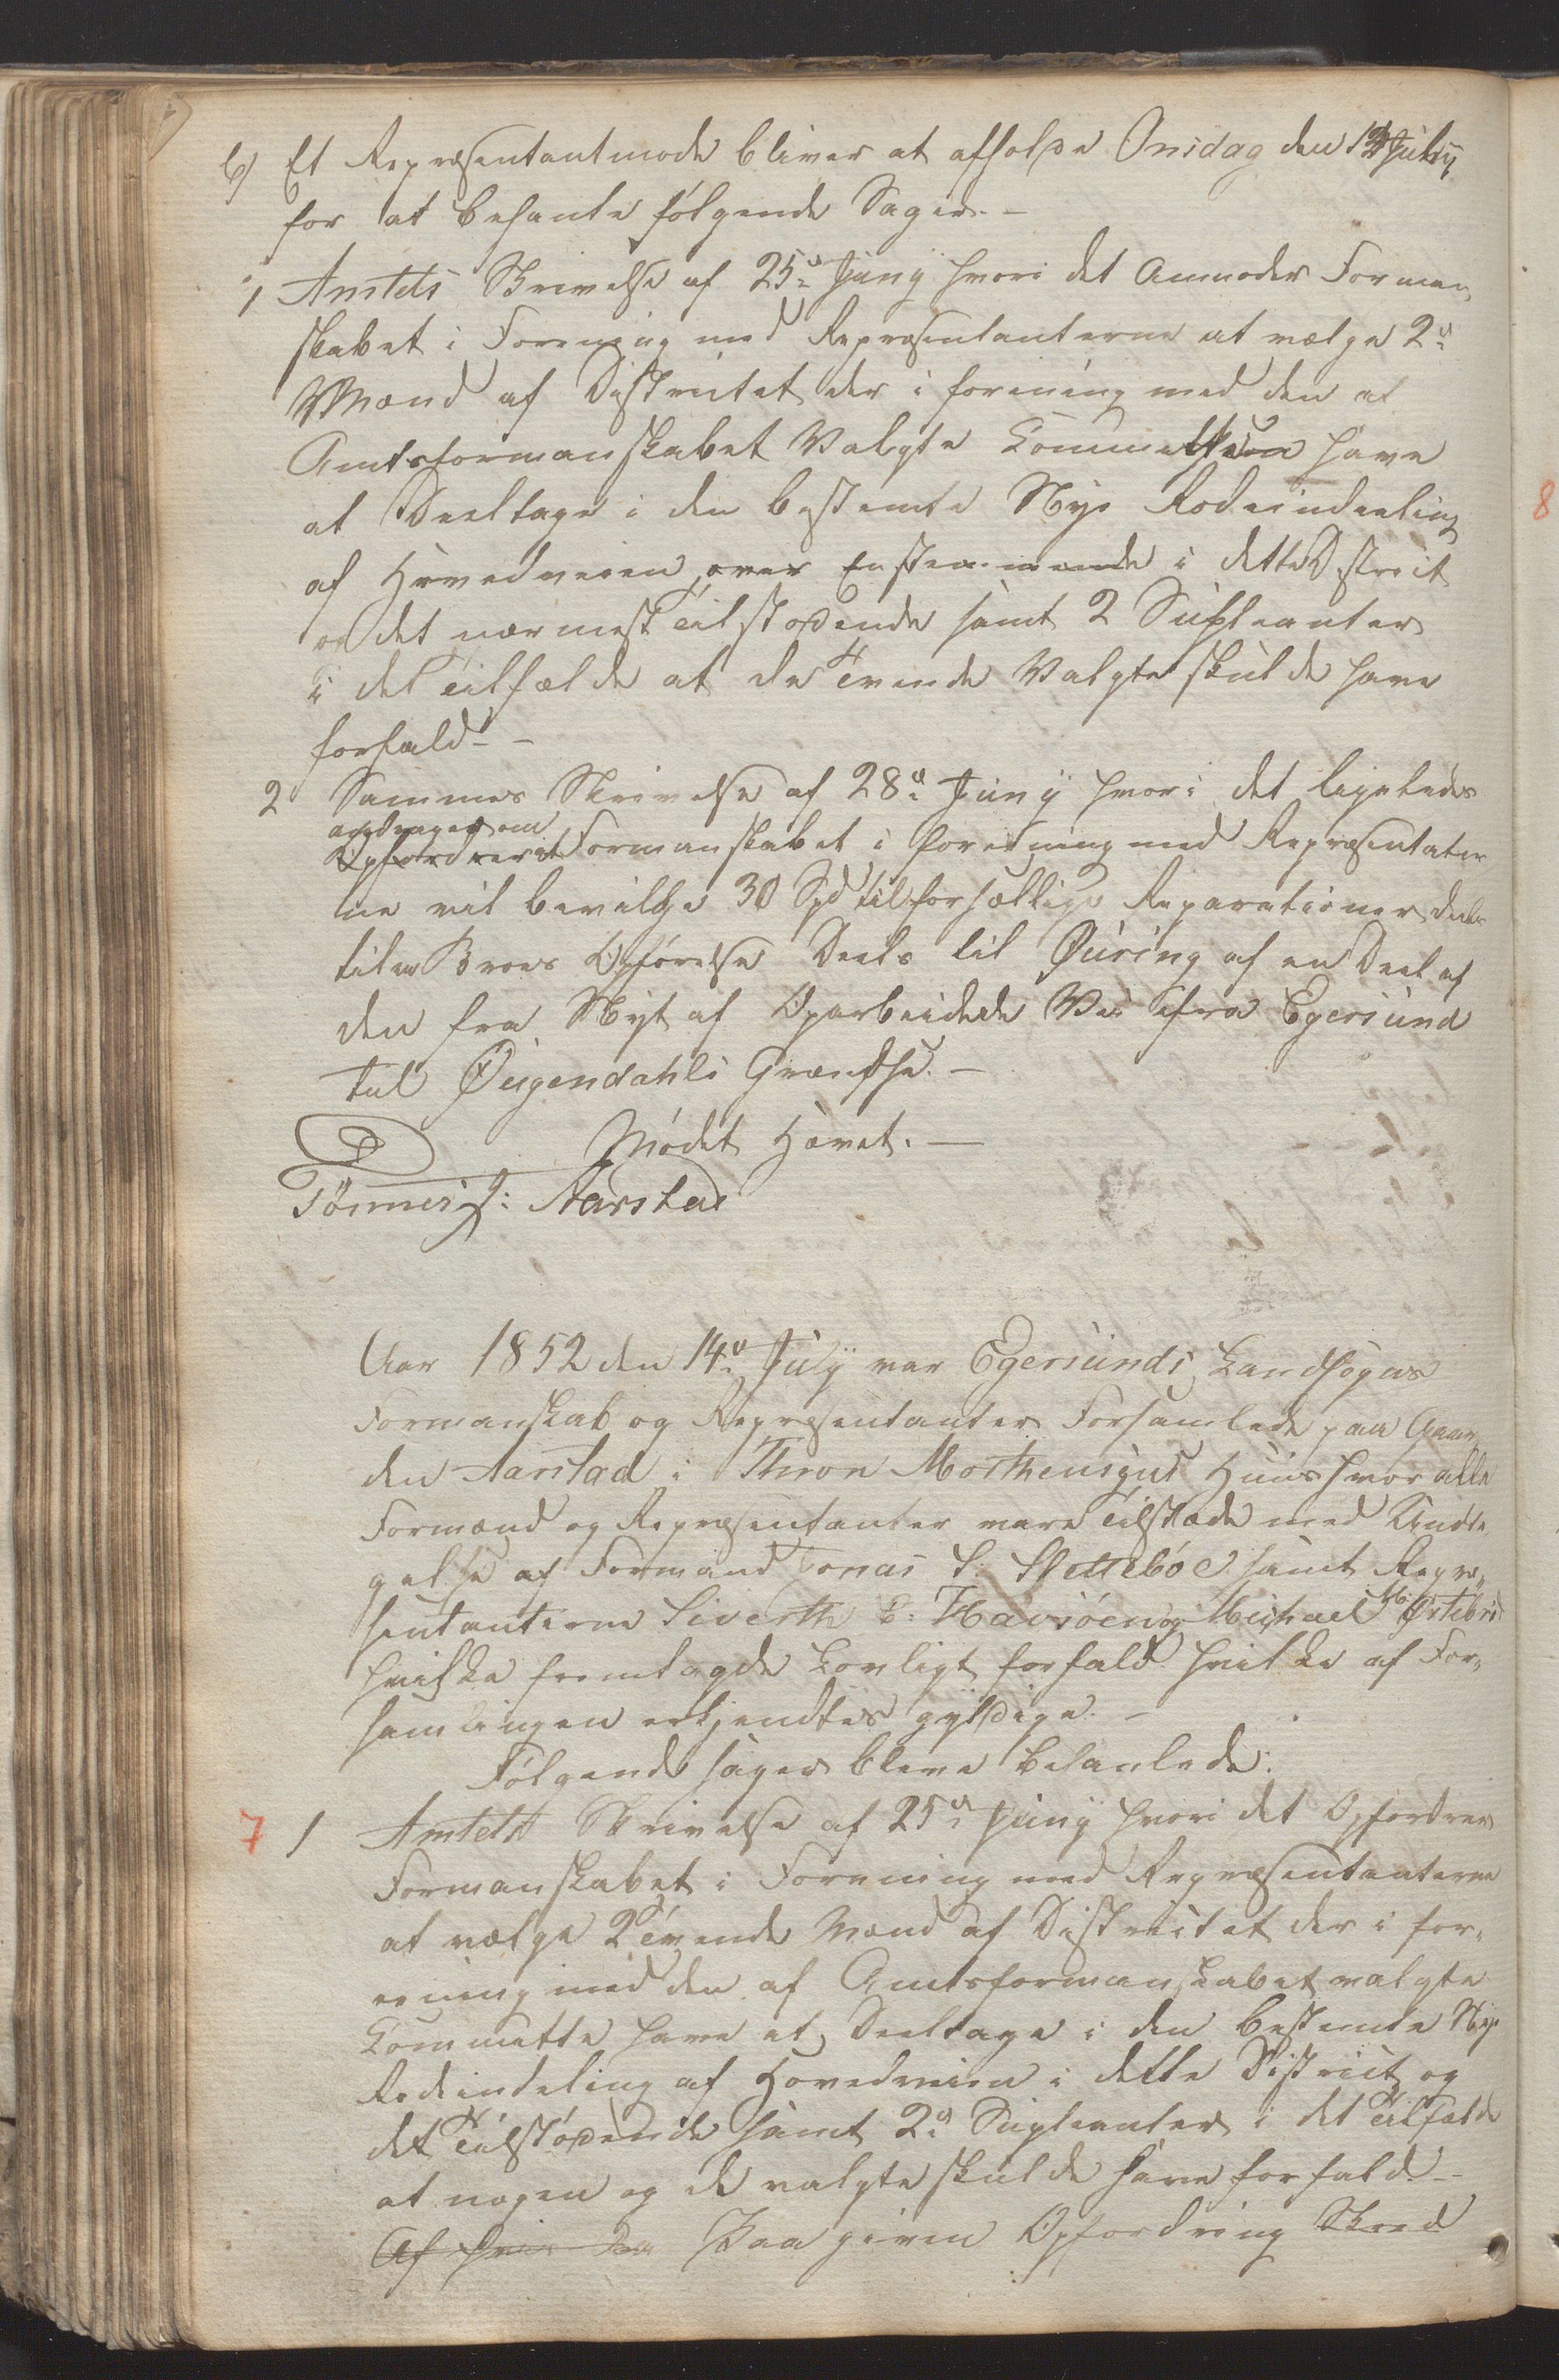 6) Et Repræsentantmøde bliver at afholde Onsdag den 14 July
for at behante følgende Sager. -
1, Amtets Skrivelse af 25de Juny hvori det Anmoder Forman,
skabet i Forening med Repræsentanterne at vælge 2de
Mænd af Districtet der i forening med den af
Amtsformanskabet Valgte Committe have
at Deeltage i den bestemte Nye Rodeindeeling
af Hovedveien over Enstemmende i dette District
og det nærmest Tilstødende samt 2 Supleanter
i det Tilfælde at de Tvende Valgte skulde have
forfald. -
2 Sammes Skrivelse af 28de Juny hvori det ligeledes
andrages om
Opfordrer at Formanskabet i forening med Repræsentater
ne vil bevilge 30 Spd til forsællige Reparationer deels
til en Broes Opførelse Deels til Øuring af en Deel af
den fra Nyt af Oparbeidede Vei ifra Egersund
til Øigendahls Grændse. -
Mødet Hævet. -
Tønnes J: Aarstad
Aar 1852 den 14de July var Egersunds Landsogns
Formanskab og Repræsentanter Forsamlede paa Gaar,
den Aarstad i Thron Morthensens Huus hvor alle
Formænd og Repræsentanter vare Tilstæde med Undta,
gelse af Formand Jonas S. Slettebøe samt Repræ,
sentanterne Siverth E. Havsøe og Michael M. Østebrød
hvilke fremlagde Lovligt forfald hvilke af For,
samlingen erkjendtes gyldige. -
Følgende sager bleve behanlede:
7 1 Amtets Skrivelse af 25de Juny hvori det Opfordrer
Formanskabet i Forening med Repræsentanterne
at vælge 2 Tvende Mænd af Districtet der i for,
eening med den af Amtsformanskabet valgte
Committe have at Deeltage i den bestemte Nye
Rodeindeling af Hovedveien i dette District og
det Tilstødende samt 2de Supleanter i det Tilfælde
at nogen og de valgte skulde have forfald. -
Af hvis Paa given Opfordring Skred
8